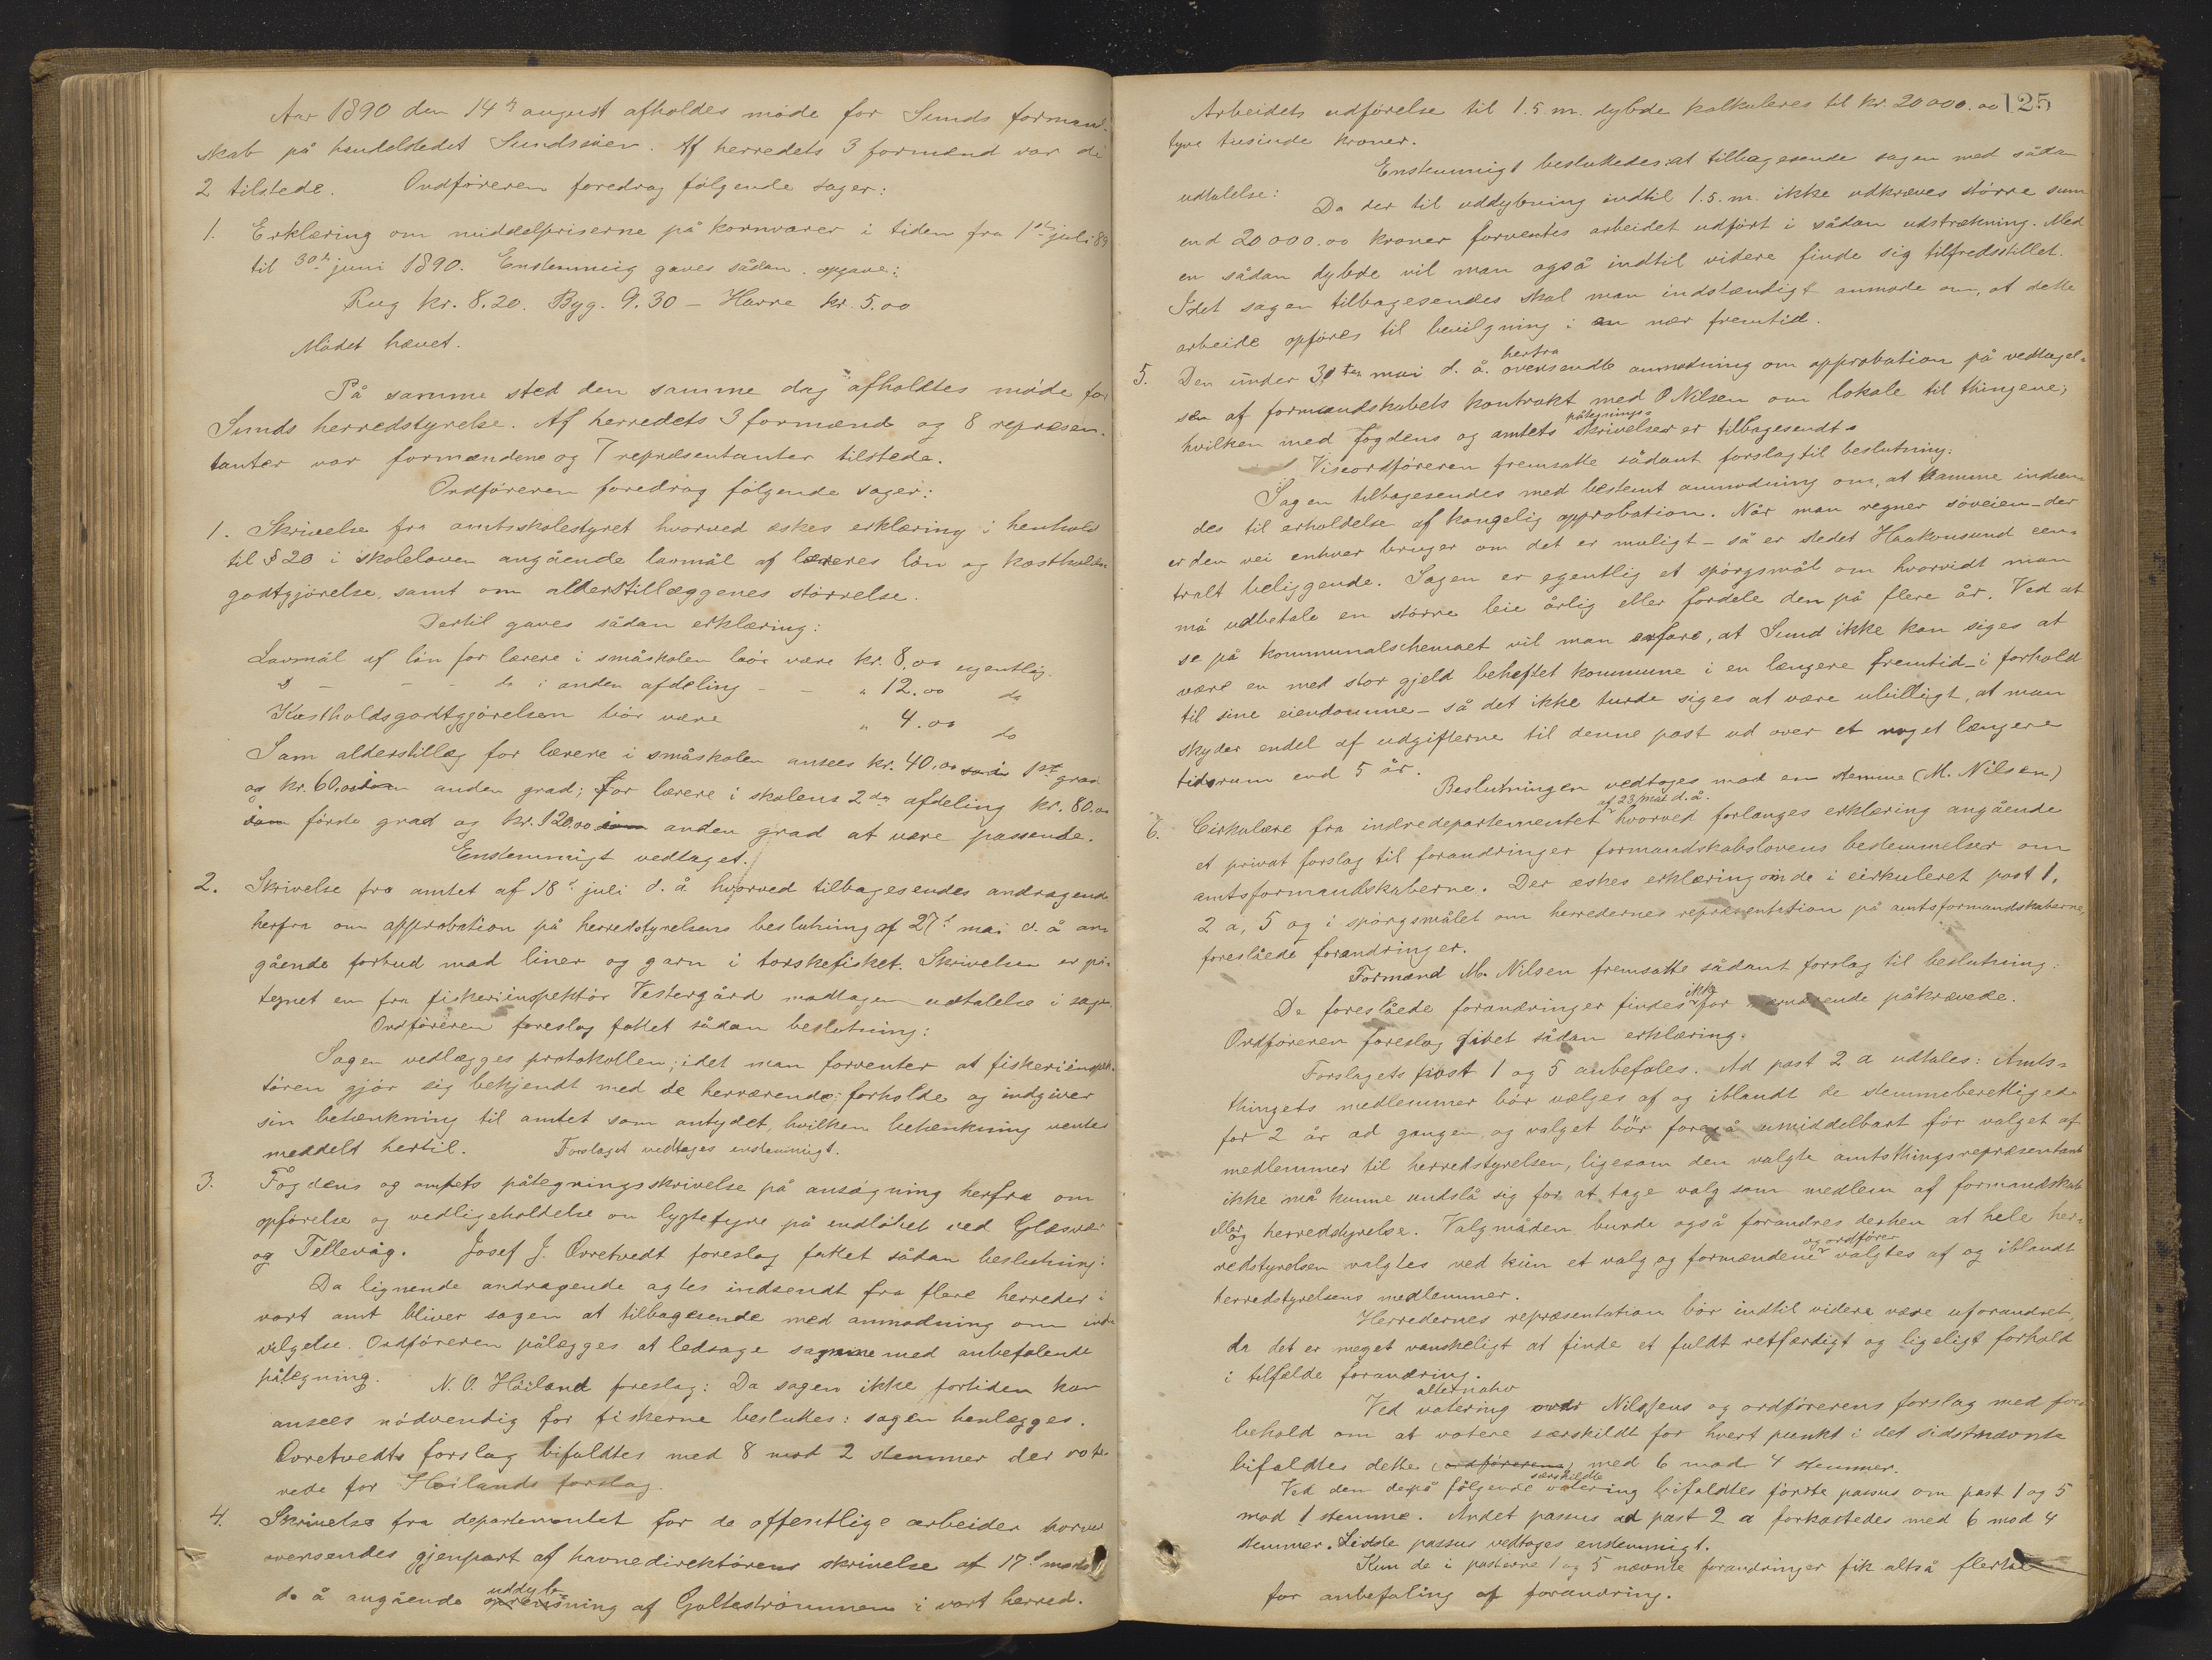 Aar 1890 den 14de august afholdes møde for Sunds formand-
skab på handelstedet Sundsøien. Af herredets 3 formænd var de
2 tilstede. Ordføreren foredrog følgende sager:
1. Erklæring om middelpriserne på kornvarer i tiden fra 1ste juli 89
til 30te juni 1890. Enstemmig gaves sådan opgave:
Rug kr. 8.20. Byg. 9.30 – Havre kr. 5.00
Mødet hævet.
På samme sted den samme dag afholdtes møde for
Sunds herredstyrelse. Af herredets 3 formænd og 8 repræsen-
tanter var formændene og 7 repræsentanter tilstede.
Ordføreren foredrog følgende sager:
1. Skrivelse fra amtsskolestyret hvorved æskes erklæring i henhold
til § 20 i skoleloven angående lavmål af læreres løn og kostholds-
godtgjørelse, samt om alderstillæggenes størrelse.
Dertil gaves sådan erklæring:
Lavmål af løn for lærere i småskolen bør være kr. 8.00 ugentlig.
" – – – do i anden afdeling – – " 12.00 do
Kostholdsgodtgjørelsen bør være " 4.00 do
Som alderstillæg for lærere i småskolen ansees kr. 40.00 som 1ste grad
og kr. 60.00 som anden grad; for lærere i skolens 2den afdeling kr. 80.00
som første grad og kr. 120.00 som anden grad at være passende.
Enstemmigt vedtaget.
2. Skrivelse fra amtet af 18de juli d. å hvorved tilbagesendes andragende
herfra om approbation på herredstyrelsens beslutning af 27de mai d. å an-
gående forbud mod liner og garn i torskefisket. Skrivelsen er på-
tegnet en fra fiskeriinspektør Vestergård modtagen udtalelse i sagen.
Ordføreren foreslog fattet sådan beslutning:
Sagen vedlægges protokollen, idet man forventer at fiskeriinspek-
tøren gjør sig bekjendt med de herværende forholde og indgiver
sin betænkning til amtet som antydet, hvilken betænkning ventes
meddelt hertil. Forslaget vedtoges enstemmigt.
3. Fogdens og amtets påtegningsskrivelse på ansøgning herfra om
opførelse og vedligeholdelse om lygtefyre på indløbet ved Glæsvær
og Tellevåg. Josef J. Øvretvedt foreslog fattet sådan beslutning:
Da lignende andragende agtes indsendt fra flere herreder i
vort amt bliver sagen at tilbagesende med anmodning om ind-
vilgelse. Ordføreren pålægges at ledsage sagerne med anbefalende
påtegning. N. O. Høiland foreslog: Da sagen ikke fortiden kan
ansees nødvendig for fiskerne besluttes: sagen henlægges.
Øvretvedts forslag bifaldtes med 8 mod 2 stemmer der vote-
rede for Høilands forslag.
4. Skrivelse fra departementet for de offentlige arbeider hvorved
oversendes gjenpart af havnedirektørens skrivelse af 17de
d. å angående uddybning af Goltestrømmen i vort herred.
125
Arbeidets udførelse til 1.5 m. dybde kalkuleres til kr. 20000.00
tyve tusinde kroner.
Enstemmigt besluttedes at tilbagesende sagen med sådan
udtalelse:
Da der til uddybning indtil 1.5. m. ikke udkræves større sum
end 20000.00 kroner forventes arbeidet udført i sådan udstrækning. Med
en sådan dybde vil man også indtil videre finde sig tilfredsstillet.
Idet sagen tilbagesendes skal man indstændigt anmode om, at dette
arbeide opføres til bevilgning i en nær fremtid.
5. Den under 30te mai d. å. herfra oversendte anmodning om approbation på vedtagel-
sen af formandskabets kontrakt med O. Nilsen om lokale til thingene;
hvilken med fogdens og amtets påtegnings-skrivelser er tilbagesendt.
Viseordføreren fremsatte sådant forslag til beslutning:
Sagen tilbagesendes med bestemt anmodning om, at samme indsen-
des til erholdelse af kongelig approbation. Når man regner søveien – der
er den vei enhver bruger om det er muligt – så er stedet Haakonsund cen-
tralt beliggende. Sagen er egentlig et spørgsmål om hvorvidt man
må udbetale en større leie årlig eller fordele den på flere år. Ved at
se på kommunalschemaet vil man erfare, at Sund ikke kan siges at
være en med stor gjeld beheftet kommune i en længere fremtid – i forhold
til sine eiendomme – så det ikke turde siges at være ubilligt, at man
skyder endel af udgifterne til denne post ud over et noget længere
tidsrum end 5 år.
Beslutningen vedtoges mod en stemme (M. Nilsen)
6. Cirkulære fra indredepartementet af 23 mai d. å. hvorved forlanges erklæring angående
et privat forslag til forandringer formandskabslovens bestemmelser om
amtsformandskaberne. Der æskes erklæring om de i cirkuleret post 1,
2 a, 5 og i spørgsmålet om herredernes repræsentation på amtsformandskaberne,
foreslåede forandringer.
Formand M. Nilsen fremsatte sådant forslag til beslutning:
De foreslåede forandringer findes ikke for nærværende påkrævede.
Ordføreren foreslog givet sådan erklæring:
Forslagets post 1 og 5 anbefales. Ad post 2 a udtales: Amts-
thingets medlemmer bør vælges af og iblandt de stemmeberettigede
for 2 år ad gangen, og valget bør foregå umiddelbart før valget af
medlemmer til herredstyrelsen, ligesom den valgte amtsthingsrepræsentant
ikke må kunne undslå sig for at tage valg som medlem af formandskab
eller og herredstyrelse. Valgmåden burde også forandres derhen at hele her-
redstyrelsen valgtes ved kun et valg og formændene og ordfører valgtes af og iblandt
herredstyrelsens medlemmer.
Herredernes repræsentation bør indtil videre være uforandret,
da det er meget vanskeligt at finde et fuldt retfærdigt og ligeligt forhold
i tilfælde forandring.
Ved votering alternativ over Nilsens og ordførerens forslag med for-
behold om at votere særskildt for hvert punkt i det sidstnævnte
bifaldtes dette (ordførerens) med 6 mod 4 stemmer.
Ved den derpå følgende særskildte votering bifaldtes første passus om post 1 og 5
mod 1 stemme. Andet passus ad post 2 a forkastedes med 6 mod 4
stemmer. Sidste passus vedtoges enstemmigt.
Kun de i posterne 1 og 5 nævnte forandringer fik altså flertal
for anbefaling af forandring.